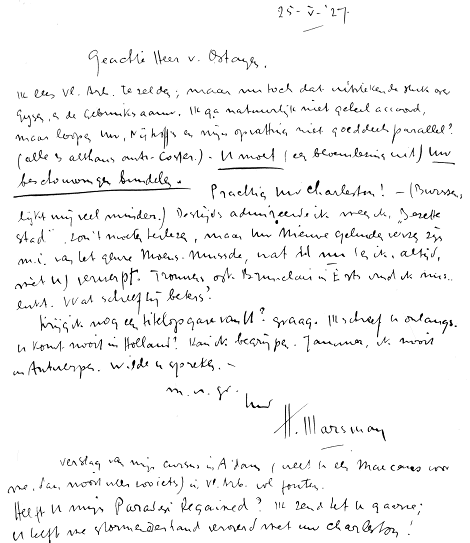 25-V-'27.
Geachte Heer v. Ostayen.
Ik lees Vl. Arb. te zelden; maar nu toch dat uitstekende stuk over
Gijsen, en de Gebruiksaanw. Ik ga natuurlijk niet geheel accoord,
maar loopen Uw, Nijhoff's en mijn opvatting niet goeddeels parallel?
(alle 3 althans anti-Coster.) - U moet (een bloemlezing uit) Uw
beschouwingen bundelen.
Prachtig Uw Charleston! - (Burssens
lijkt mij veel minder.) Destijds admireerde ik zeer de "Bezette
stad". Zou 't moeten herlezen, maar Uw nieuwe gebundelde verzen zijn
m.i. van het genre Moens. Mussche, wat dit nu is, altijd,
niet U verwerpt. Trouwens ook Brunclair in vind ik
Wat schreef hij beters?
Krijg ik nog een titelopgave van U? graag. Ik schreef U onlangs.
U komt nooit in Holland? Kan ik begrijpen. Jammer, ik nooit
in Antwerpen. Wilde U spreken. -
m. v. gr.
Uw
H. Marsman
Verslag van mijn cursus in A'dam (weet u een voor
me, dan nooit weer zooiets) in Vl. Arb. vol fouten.
Heeft U mijn Paradise Regained? Ik zend het U gaarne;
U heeft me stormenderhand veroverd met Uw Charleston!